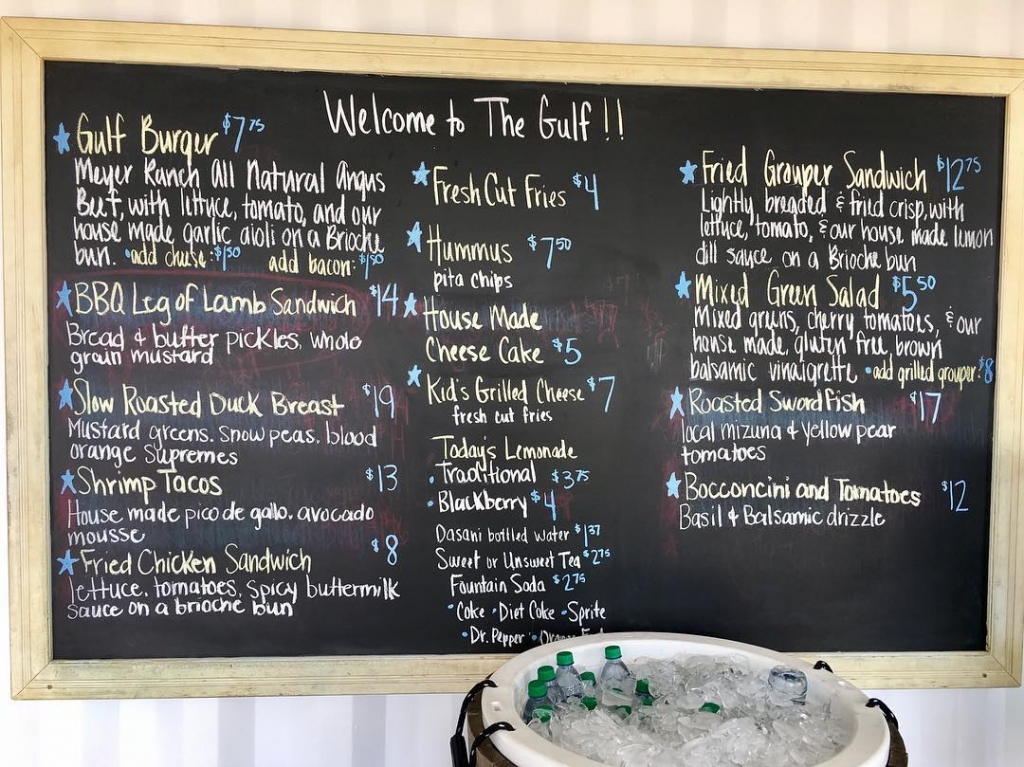 Welcome to The Gulf !!
Gulf Burger $7.75
Meyer Ranch All Natural Angus
Beef, with lettuce, tomato, and our
house made garlic aioli on a Brioche
bun. •add cheese: $1.50 add bacon: $1.50
BBQ Leg of Lamb Sandwich $14
Bread & butter pickles, whole
grain mustard
Slow Roasted Duck Breast $19
Mustard greens, snow peas, blood
orange Supremes
Shrimp Tacos $13
House made pico de gallo, avocado
mousse
Fried Chicken Sandwich $8
lettuce, tomatoes, spicy buttermilk
sauce on a brioche bun
Fresh Cut Fries $4
Hummus $7.50
pita chips
House Made
Cheese Cake $5
Kid's Grilled Cheese $7
fresh cut fries
Today's Lemonade
• Traditional $3.75
• Blackberry $4
Dasani bottled water $1.37
Sweet or Unsweet Tea $2.75
Fountain Soda $2.75
• Coke • Diet Coke • Sprite
• Dr. Pepper •
Fried Grouper Sandwich $12.75
Lightly breaded & fried crisp, with
lettuce, tomato, & our house made lemon
dill sauce on a Brioche bun
Mixed Green Salad $5.50
Mixed greens, cherry tomatoes, & our
house made, gluten free, brown
balsamic vinaigrette •add grilled grouper: $8
Roasted Swordfish $17
local mizuna & yellow pear
tomatoes
Bocconcini and Tomatoes $12
Basil & Balsamic drizzle